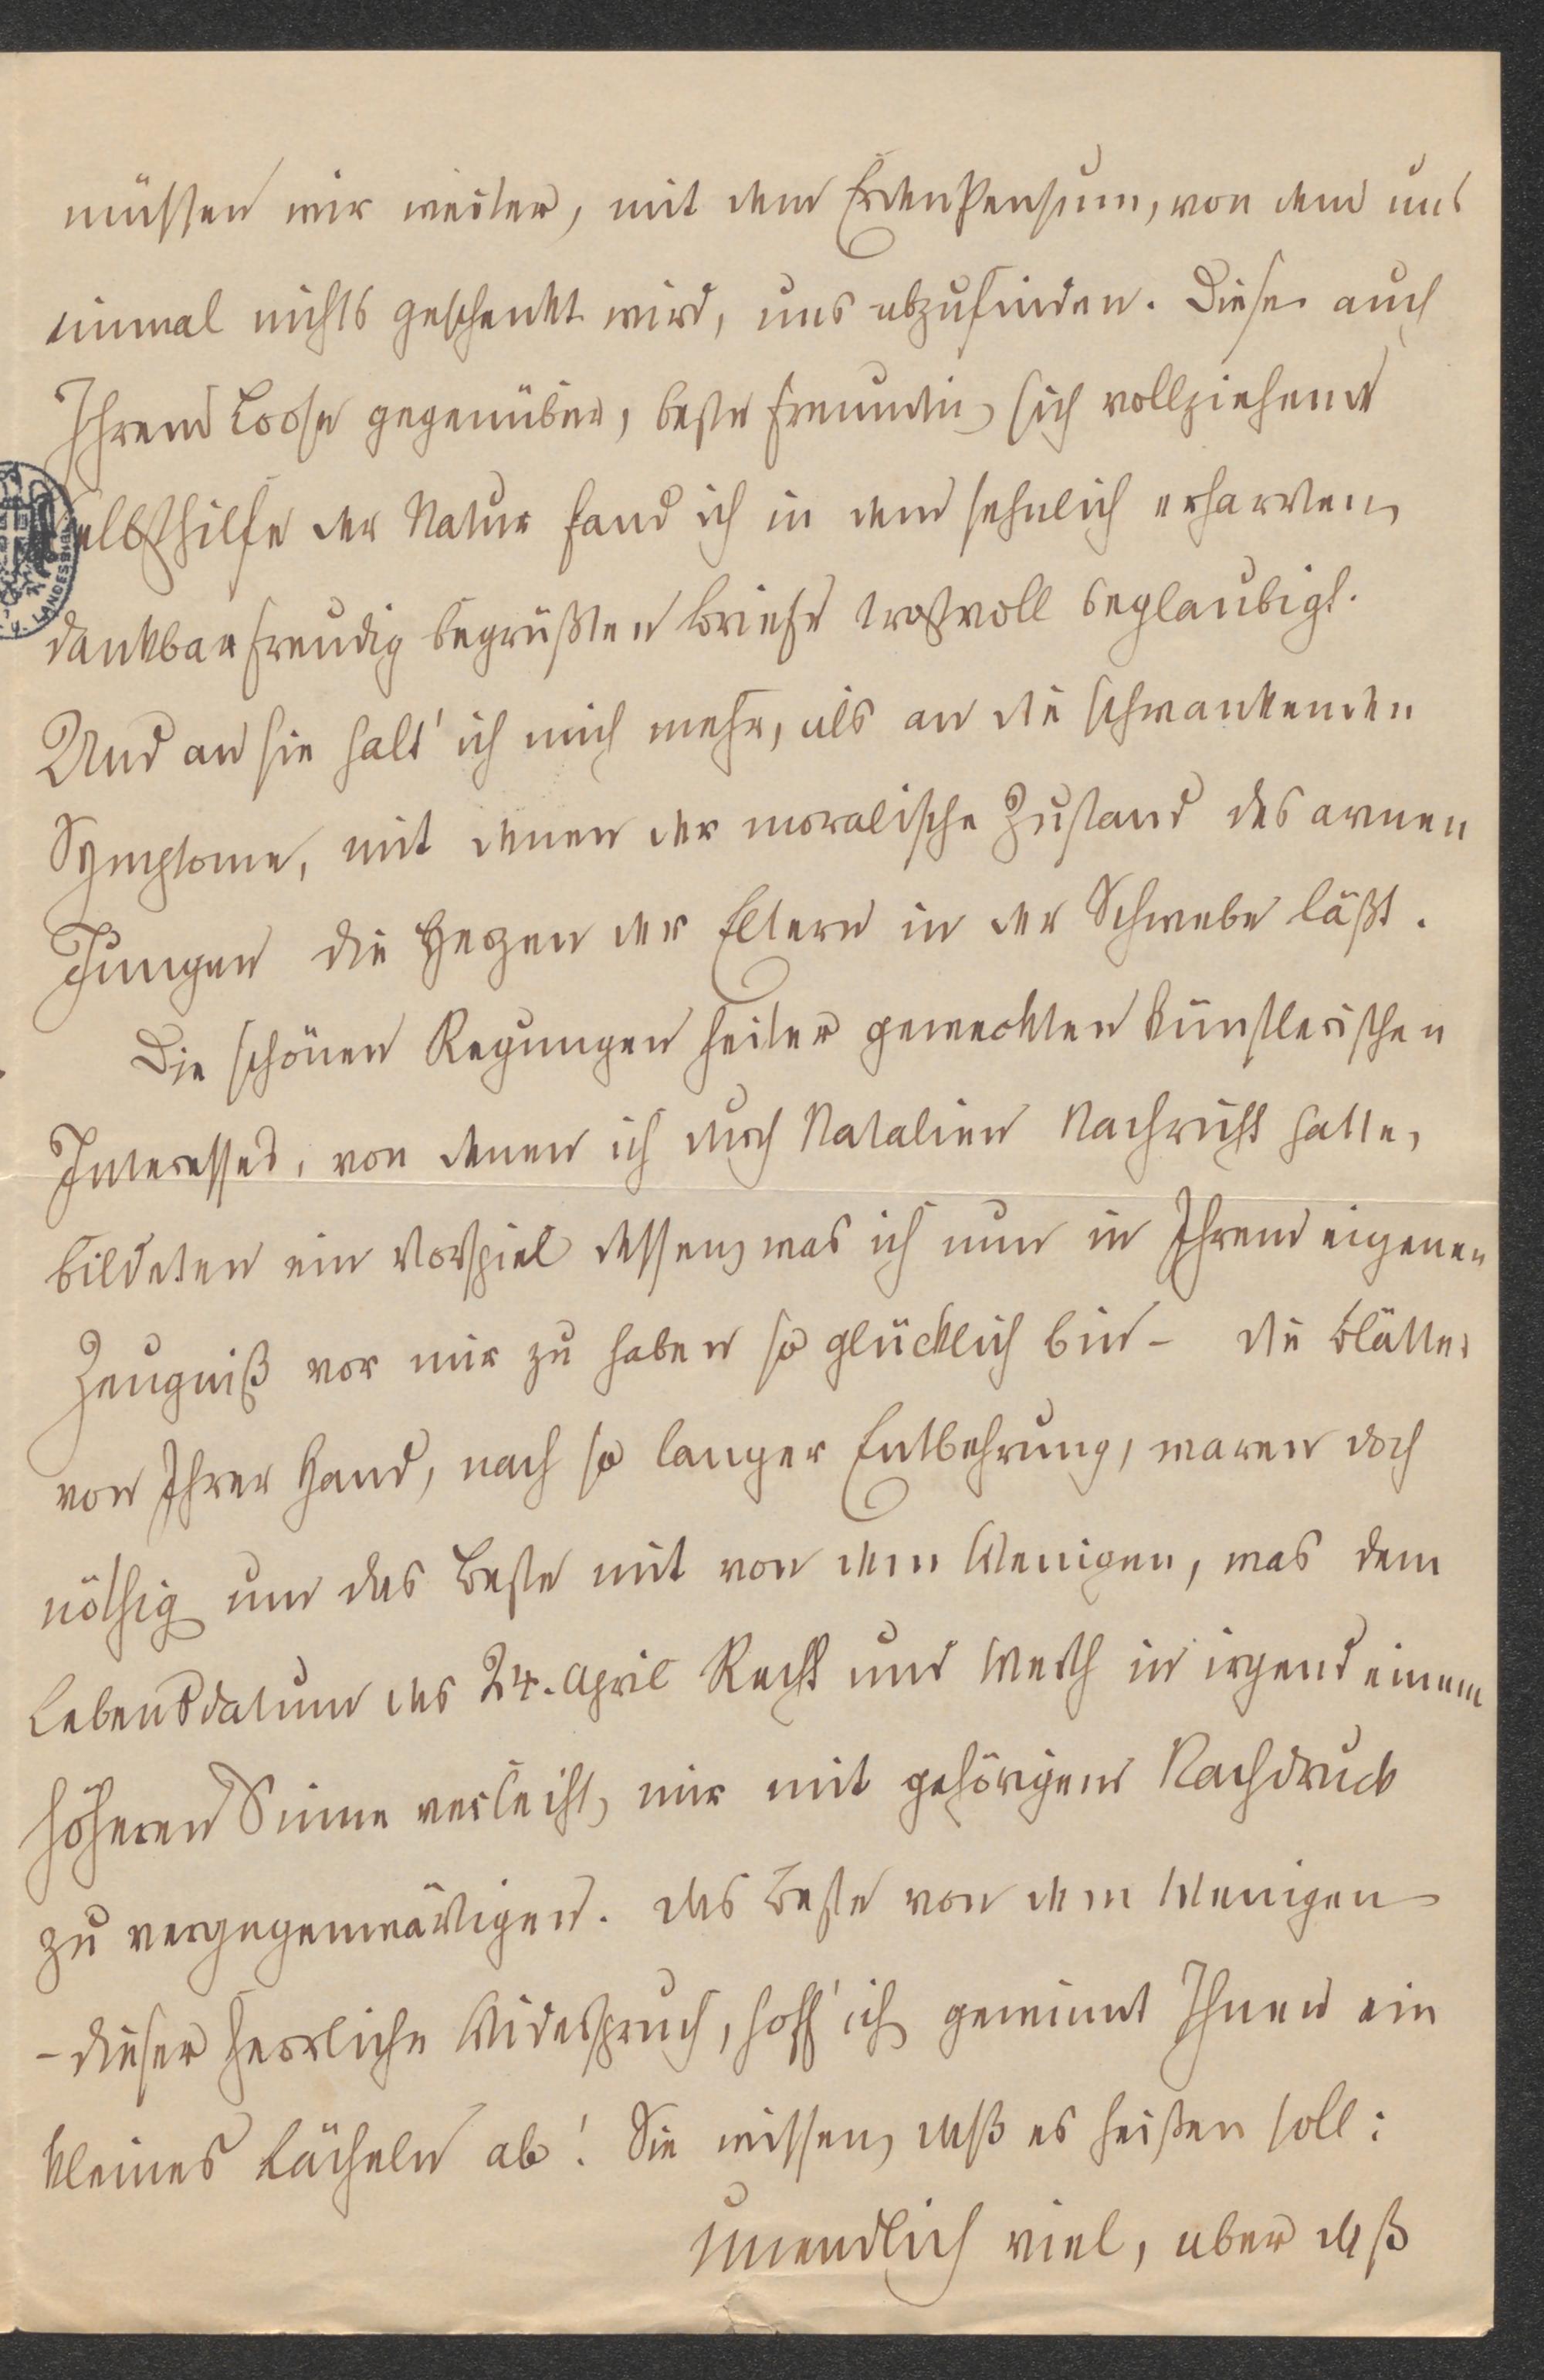 müssen wir weiter, mit dem Erdenpensum, von dem uns
einmal nichts geschenkt wird, uns abzufinden. Diese auch
Ihrem Loose gegenüber, beste Freundin, sich vollziehende
Selbsthilfe der Natur fand ich in dem sehnlich erharrten,
dankbar freudig begrüßten Briefe trostvoll beglaubigt.
Und an sie halt' ich mich mehr, als an die schwankenden
Symptome, mit denen der moralische Zustand des armen
Jungen die Herzen der Eltern in der Schwebe läßt.
Die schönen Regungen heiter geweckten künstlerischen
Interesses, von denen ich durch Natalien Nachricht hatte,
bildeten ein Vorspiel dessen, was ich nun in Ihrem eigenen
Zeugniß vor mir zu haben so glücklich bin – die Blätter
von Ihrer Hand, nach so langer Entbehrung, waren doch
nöthig um das Beste mit von dem Wenigen, was dem
Lebensdatum des 24. April Recht und Werth in irgend einem
höheren Sinne verleiht, mir mit gehörigem Nachdruck
zu vergegenwärtigen. Das Beste von dem Wenigen
– dieser herrliche Widerspruch, hoff' ich, gewinnt Ihnen ein
kleines Lächeln ab! Sie wissen, daß es heißen soll:
unendlich viel, aber daß
LANDESBIBL